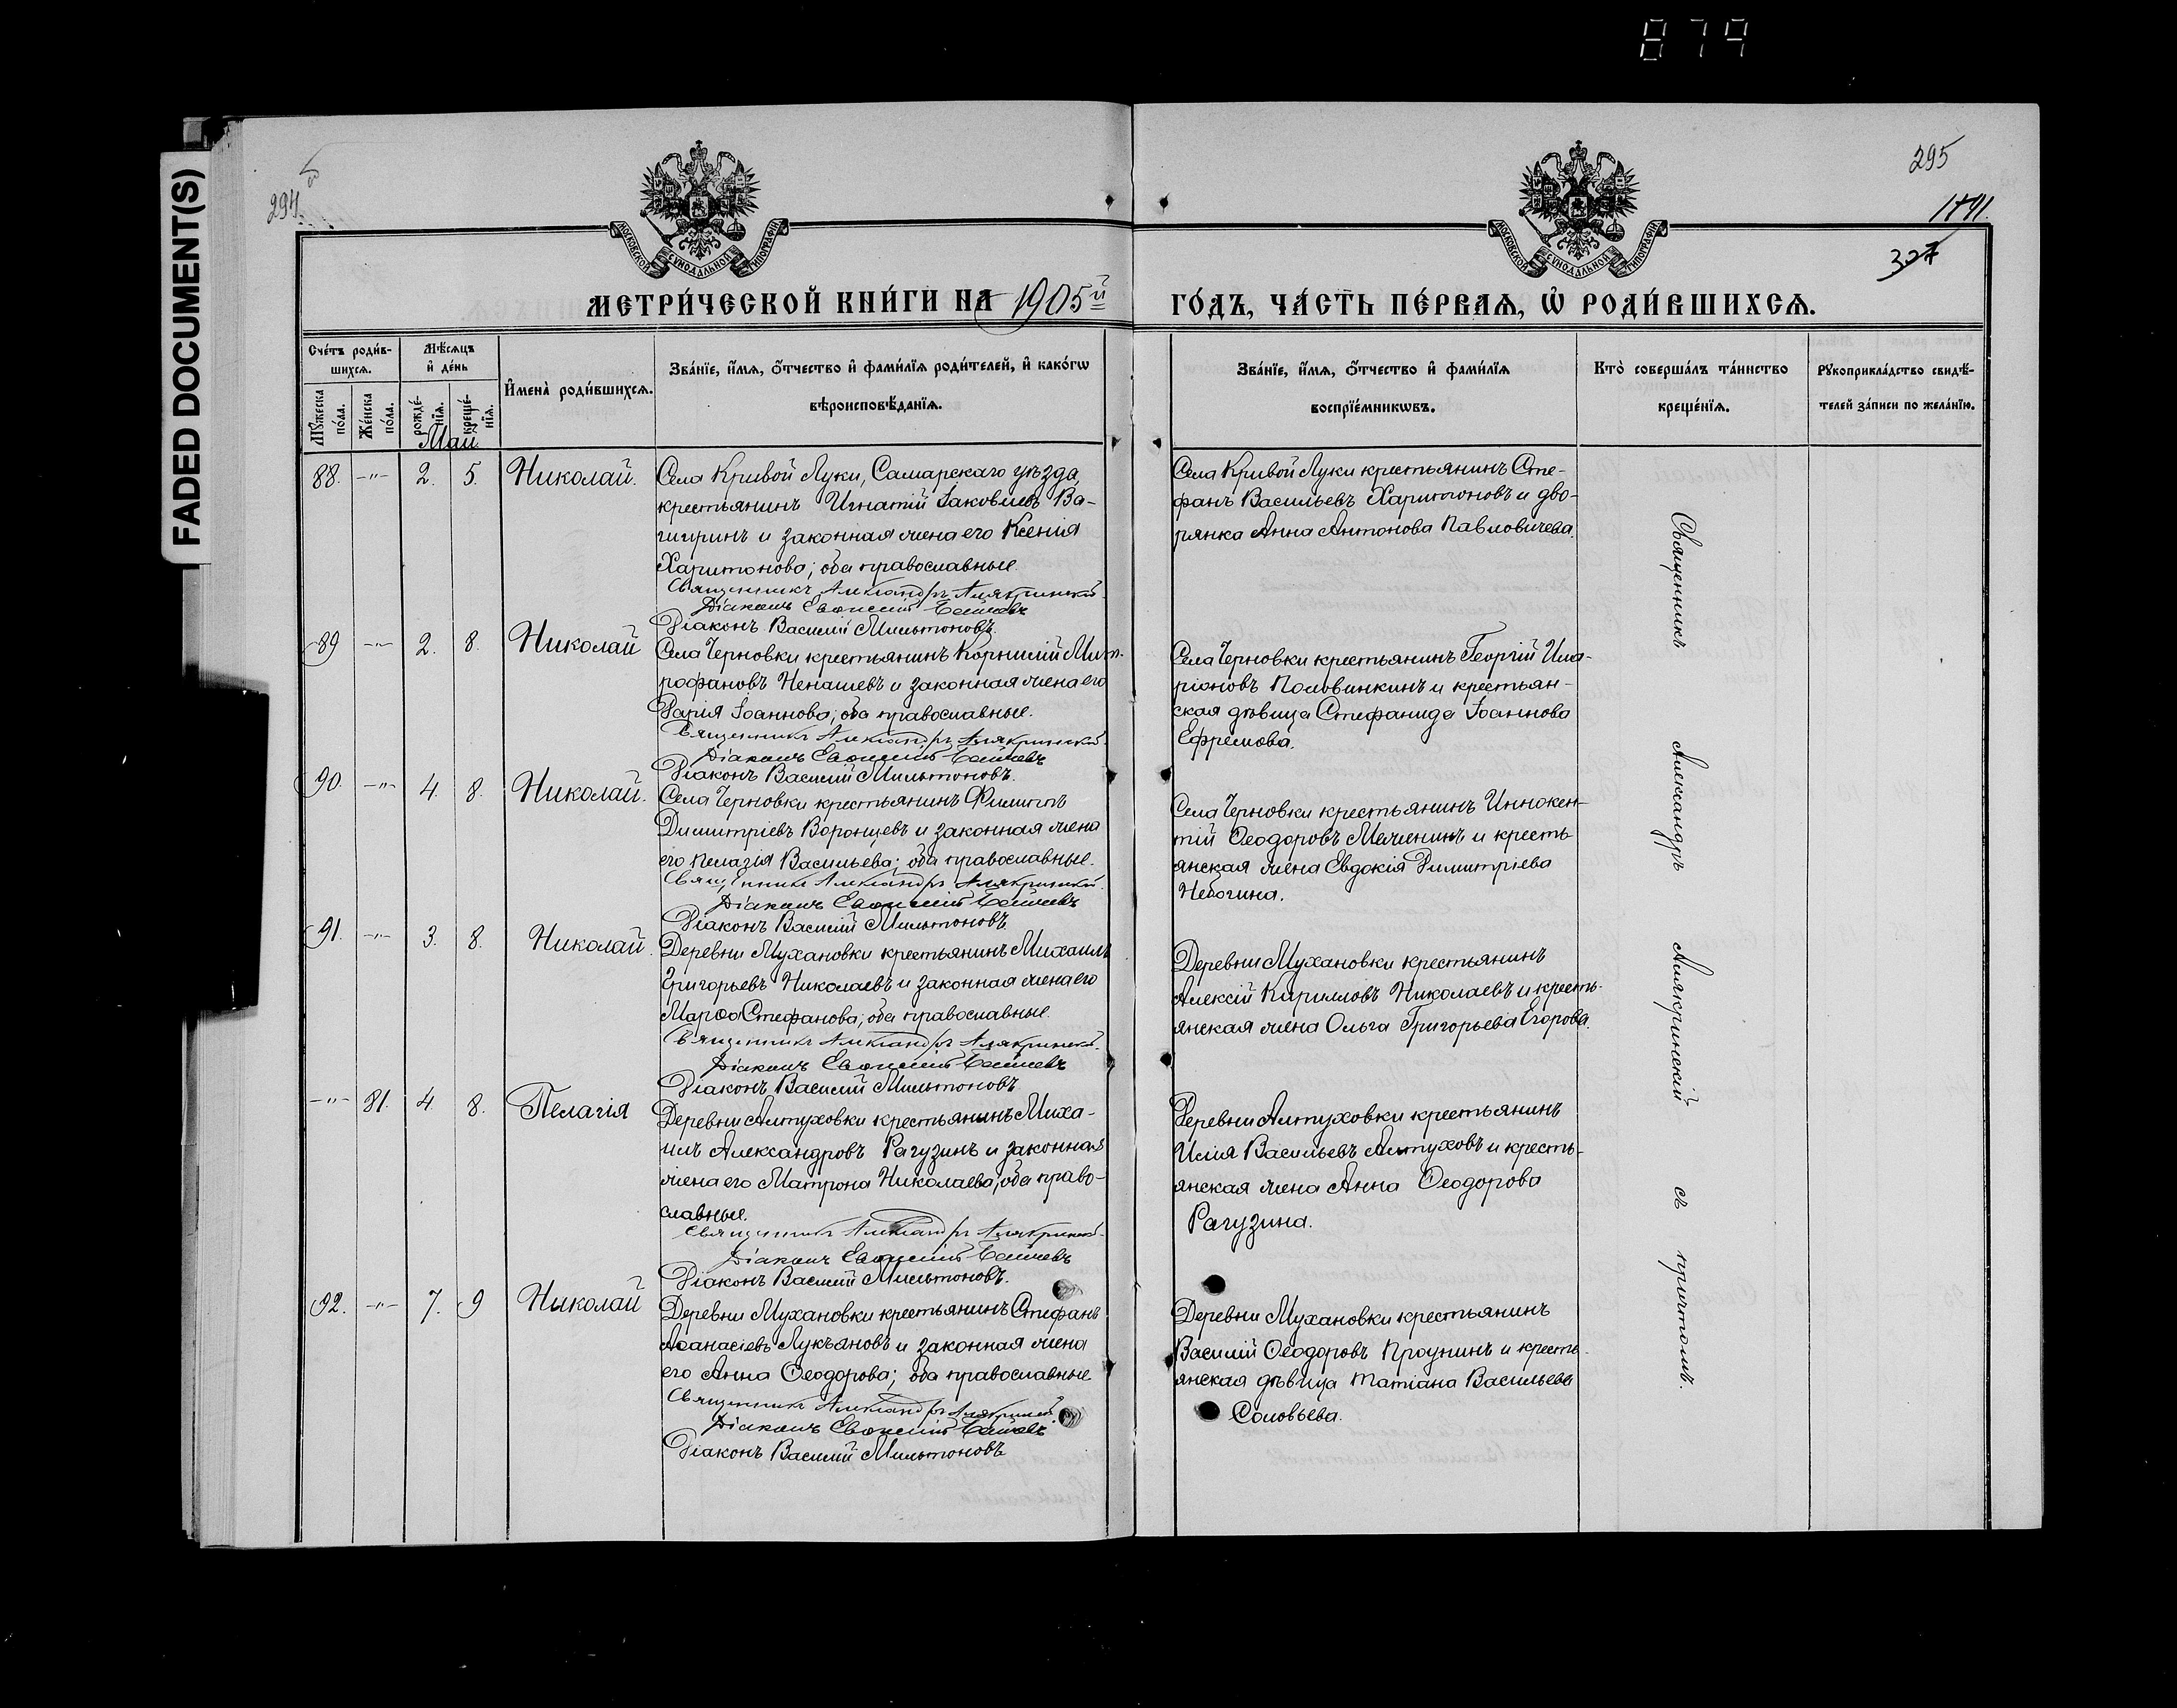 879
FADED DOCUMENT(S)
294
295
1891.
327
МОСКОВСКОЙ СУНОДАЛЬНОЙ ТИПОГРАФІИ
МОСКОВСКОЙ СУНОДАЛЬНОЙ ТИПОГРАФІИ
МЕТРИ́ЧЕСКОЙ КНИ́ГИ НА 1905й
ГО́ДЪ, ЧА́СТЬ ПЕ́РВАѦ, Ѡ РОДИ́ВШИХСѦ.
Сче́тъ роди́в-
шихсѧ.
Мѣ́сѧцъ
и҆ де́нь
Мꙋ́жеска по́ла.
Же́нска по́ла.
рожде́-нїѧ.
креще́-нїѧ.
И҆мена̀ роди́вшихсѧ.
Зва́нїе, и҆́мѧ, ѻ҆́тчество и҆ фами́лїѧ роди́телей, и҆ како́гѡ
вѣроисповѣ́данїѧ.
Зва́нїе, и҆́мѧ, ѻ҆́тчество и҆ фами́лїѧ
воспрїе́мникѡвъ.
Кто̀ соверша́лъ та́инство
креще́нїѧ.
Рꙋкоприкла́дство свидѣ́-
телей за́писи по жела́нїю.
Маи
88. -"- 2. 5. Николай.
Села Кривой Луки, Самарскаго уѣзда,
крестьянинъ Игнатій Іаковлевъ Ва-
гиринъ и законная жена его Ксенія
Харитонова; оба православные.
Священникъ Александръ Алякринскій.
Діаконъ Евѳимій
Діаконъ Василій Мильтоновъ.
Села Кривой Луки крестьянинъ Сте-
фанъ Васильевъ Харитоновъ и дво-
рянка Анна Антонова Павловичева.
89 -"- 2. 8. Николай
Села Черновки крестьянинъ Корнилій Мит-
рофановъ Ненашевъ и законная жена его
Дарія Іоаннова; оба православные.
Священникъ Александръ Алякринскій.
Діаконъ Евѳимій
Діаконъ Василій Мильтоновъ.
Села Черновки крестьянинъ Георгій Ила-
ріоновъ Половинкинъ и крестьян-
ская дѣвица Стефанида Іоаннова
Ефремова.
90. -"- 4. 8. Николай.
Села Черновки крестьянинъ Филиппъ
Димитріевъ Воронцевъ и законная жена
его Пелагія Васильева; оба православные.
Священникъ Александръ Алякринскій.
Діаконъ Евѳимій
Діаконъ Василій Мильтоновъ.
Села Черновки крестьянинъ Иннокен-
тій Ѳеодоровъ и кресть
янская жена Евдокія Димитріева
Небогина.
91. -"- 3. 8. Николай.
Деревни Мухановки крестьянинъ Михаилъ
Григорьевъ Николаевъ и законная жена его
Марѳа Стефанова; оба православные.
Священникъ Александръ Алякринскій.
Діаконъ Евѳимій
Діаконъ Василій Мильтоновъ.
Деревни Мухановки крестьянинъ
Алексій Кирилловъ Николаевъ и кресть-
янская жена Ольга Григорьева Егорова.
-"- 81. 4. 8. Пелагія
Деревни Алтуховки крестьянинъ Миха-
илъ Александровъ Рагузинъ и законная
жена его Матрона Николаева; оба право-
славные.
Священникъ Александръ Алякринскій.
Діаконъ Евѳимій
Діаконъ Василій Мильтоновъ.
Деревни Алтуховки крестьянинъ
Илія Васильевъ Алтуховъ и кресть-
янская жена Анна Ѳеодорова
Рагузина.
92. -"- 7. 9 Николай
Деревни Мухановки крестьянинъ Стефанъ
Аѳанасіевъ Лукьяновъ и законная жена
его Анна Ѳеодорова; оба православные
Священникъ Александръ Алякринскій.
Діаконъ Евѳимій
Діаконъ Василій Мильтоновъ
Деревни Мухановки крестьянинъ
Василій Ѳеодоровъ Проунинъ и кресть-
янская дѣвица Татіана Васильева
Соловьева.
Священникъ Александръ Алякринскій съ причтомъ.